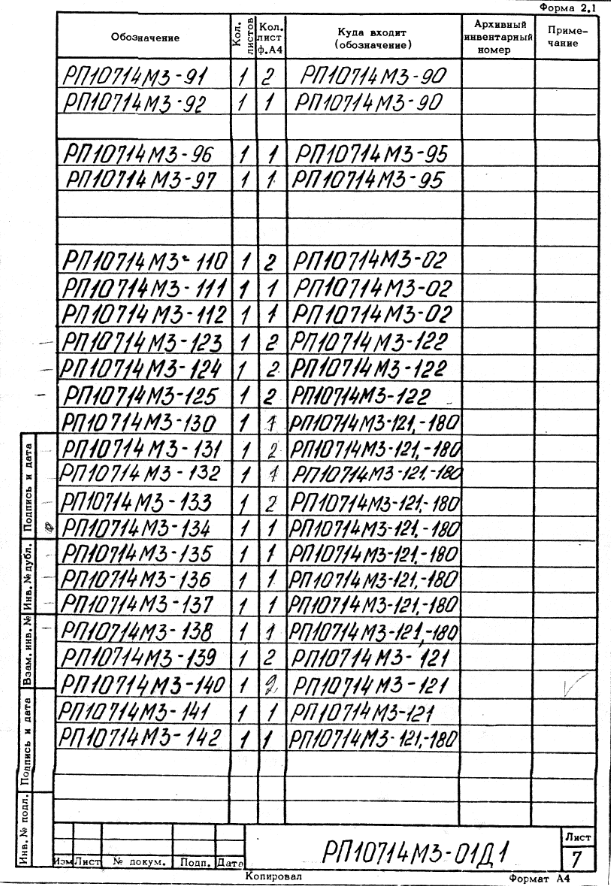 Форма 2.1
Обозначение Кол. листов Кол. лист ф.А4 Куда входит (обозначение) Архивный инвентарный номер Приме-чание
РП10714М3-91 1 2 РП10714М3-90
РП10714М3-92 1 1 РП10714М3-90
РП10714М3-96 1 1 РП10714М3-95
РП10714М3-97 1 1 РП10714М3-95
РП10714М3-110 1 2 РП10714М3-02
РП10714М3-111 1 1 РП10714М3-02
РП10714М3-112 1 1 РП10714М3-02
РП10714М3-123 1 2 РП10714М3-122
РП10714М3-124 1 2 РП10714М3-122
РП10714М3-125 1 2 РП10714М3-122
РП10714М3-130 1 1 РП10714М3-121,-180
РП10714М3-131 1 2 РП10714М3-121,-180
РП10714М3-132 1 1 РП10714М3-121,-180
РП10714М3-133 1 2 РП10714М3-121,-180
РП10714М3-134 1 1 РП10714М3-121,-180
РП10714М3-135 1 1 РП10714М3-121,-180
РП10714М3-136 1 1 РП10714М3-121,-180
РП10714М3-137 1 1 РП10714М3-121,-180
РП10714М3-138 1 1 РП10714М3-121,-180
РП10714М3-139 1 2 РП10714М3-121
РП10714М3-140 1 2 РП10714М3-121
РП10714М3-141 1 1 РП10714М3-121
РП10714М3-142 1 1 РП10714М3-121,-180
Подпись и дата
Инв. № дубл.
Взам. инв. №
Подпись и дата
Инв. № подл.
Изм Лист № докум. Подп. Дата
РП10714М3-01Д1
Лист
7
Копировал Формат А4